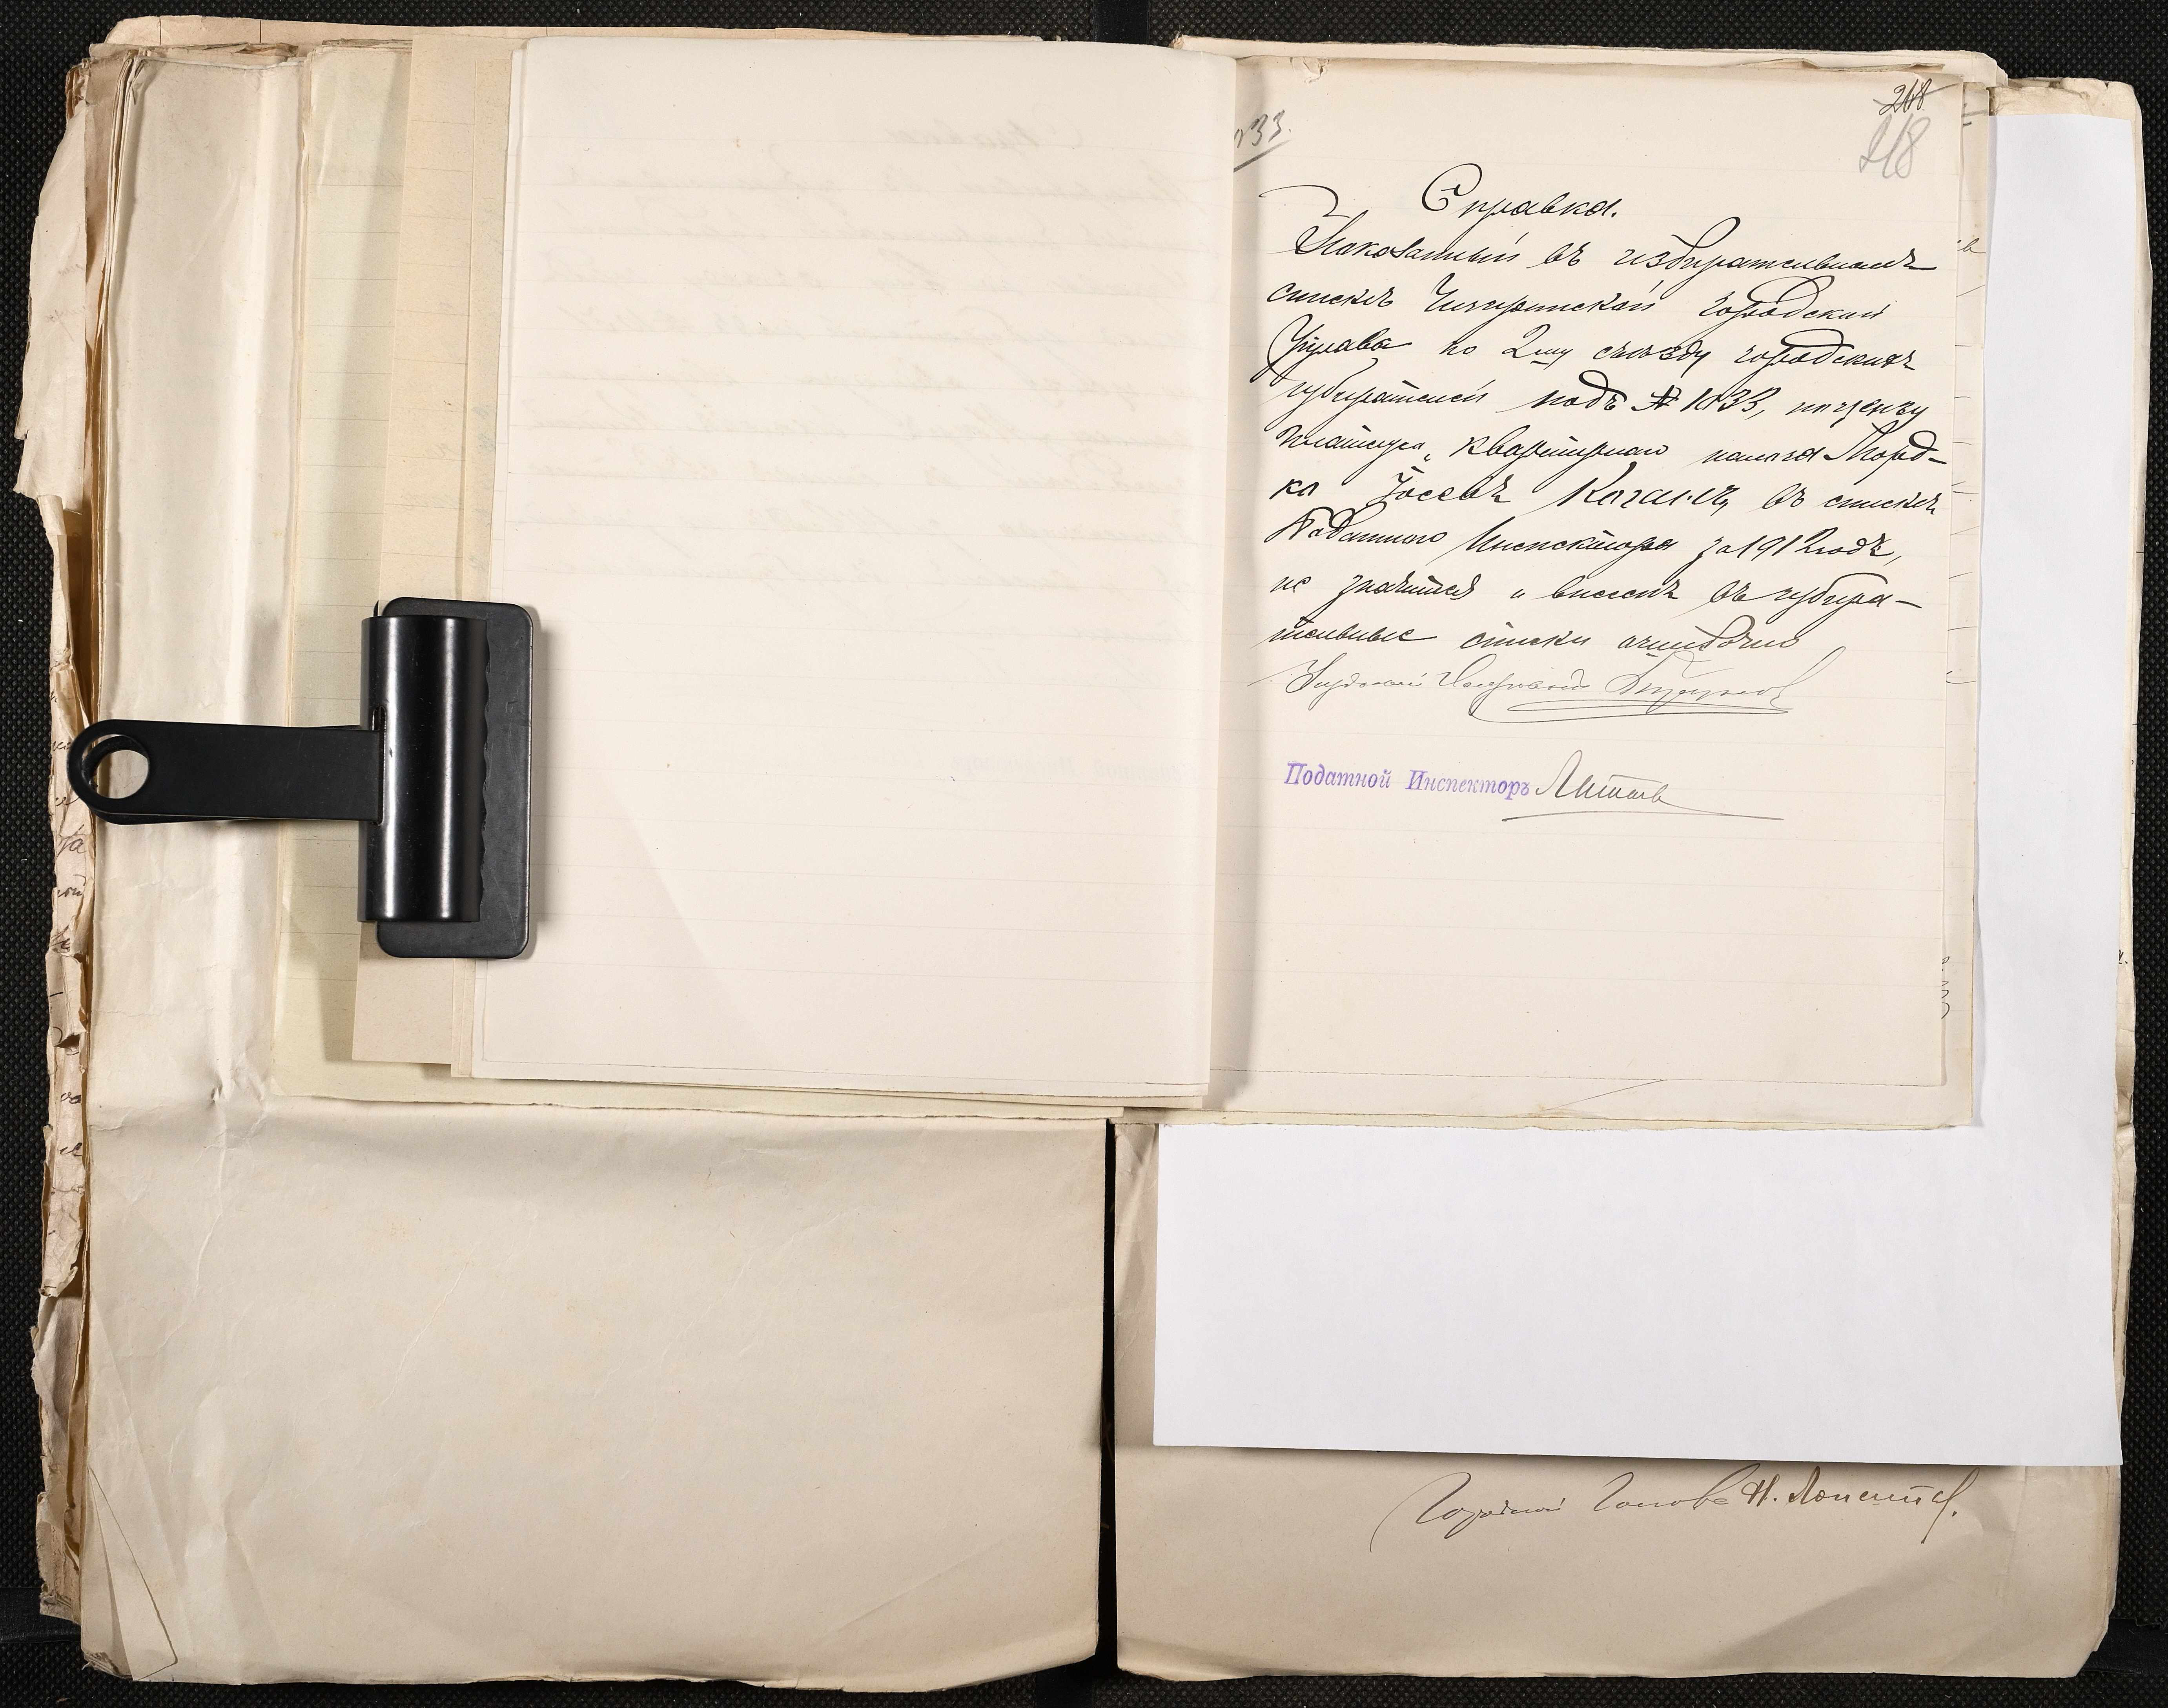 268
218
33.
Справка.
Показанный въ избирательномъ
списке Чигиринской городской
Управы по 2му съезду городскихъ
избирателей подъ № 1033, по цензу
платежа квартирнаго налога Морд-
ко Іосевъ Коганъ, въ списке
Податного Инспектора за 1912 годъ,
не значится и внесенъ въ избира-
тельные списки ошибочно
Податной Инспекторъ
Городской Голова Н.